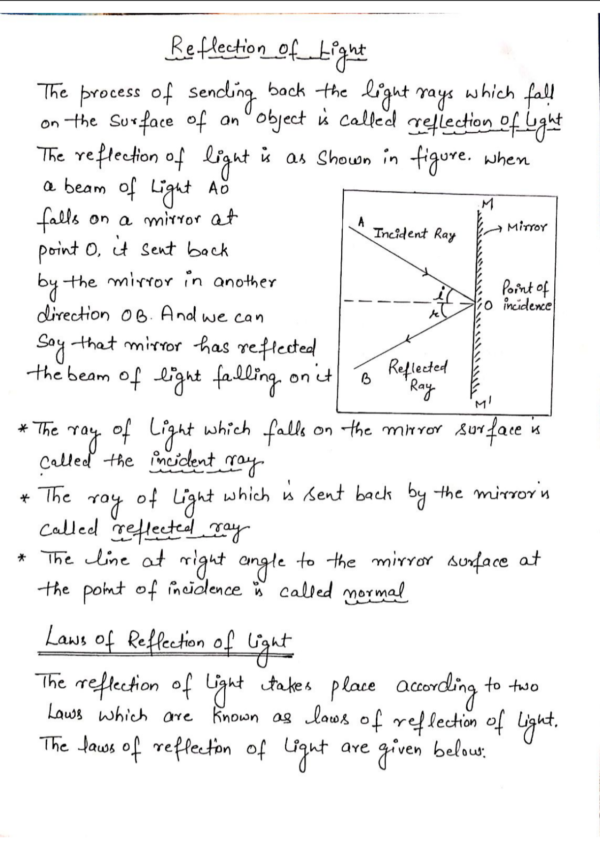 Reflection of Light
The process of sending back the light rays which fall
on the surface of an object is called reflection of light
The reflection of light is as shown in figure. when
a beam of light AO
falls on a mirror at
point O, it sent back
by the mirror in another
direction OB. And we can
Say that mirror has reflected
the beam of light falling on it
M
A
Incident Ray
Mirror
i
r
O
Point of
incidence
B
Reflected
Ray
M'
* The ray of Light which falls on the mirror surface is
called the incident ray
* The ray of Light which is sent back by the mirror is
called reflected ray
* The line at right angle to the mirror surface at
the point of incidence is called normal
Laws of Reflection of Light
The reflection of Light takes place according to two
Laws which are known as laws of reflection of Light.
The laws of reflection of Light are given below: